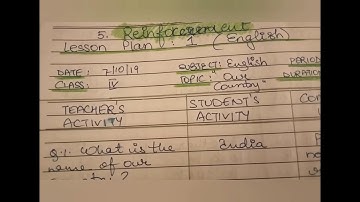 5. Reinforcement
Lesson Plan : 1 (English)
DATE : 7/10/19 SUBJECT: English PERIOD
CLASS: IV TOPIC: "Our Country" DURATION
TEACHER'S ACTIVITY STUDENT'S ACTIVITY
Q.1. What is the India
name of our